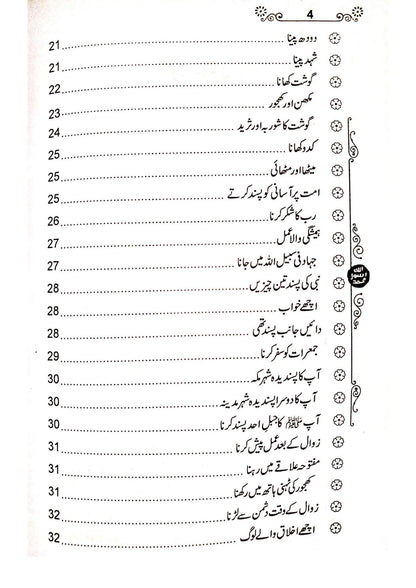 4
دودھ پینا 21
شہد پینا 21
گوشت کھانا 22
مکھن اور کھجور 23
گوشت کا شوربہ اور ثرید 24
کدو کھانا 25
میٹھا اور مٹھائی 25
امت پر آسانی کو پسند کرتے 25
رب کا شکر کرنا 26
ہمیشگی والا عمل 27
جہاد فی سبیل اللہ میں جانا 27
نبی کی پسند تین چیزیں 28
اچھے خواب 28
دائیں جانب پسند تھی 28
جمعرات کو سفر کرنا 29
آپ کا پسندیدہ شہر مکہ 30
آپ کا دوسرا پسندیدہ شہر مدینہ 30
آپ ﷺ کا جبل احد پسند کرنا 30
زوال کے بعد عمل پیش کرنا 31
مفتوحہ علاقے میں رہنا 31
کھجور کی ٹہنی ہاتھ میں رکھنا 31
زوال کے وقت دشمن سے لڑنا 32
اچھے اخلاق والے لوگ 32
اللہ
رسول
محمد